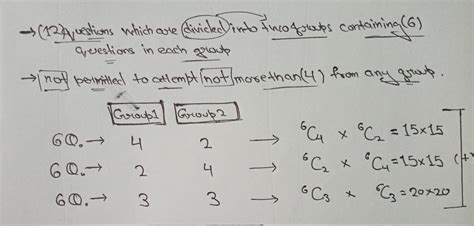 → (12) questions which are divided into two groups containing (6)
questions in each group
→ not permitted to attempt not more than (4) from any group.
Group1 Group2
6Q. → 4 2 → ⁶C₄ × ⁶C₂ = 15×15
6Q. → 2 4 → ⁶C₂ × ⁶C₄ = 15×15 (+
6Q. → 3 3 → ⁶C₃ × ⁶C₃ = 20×20